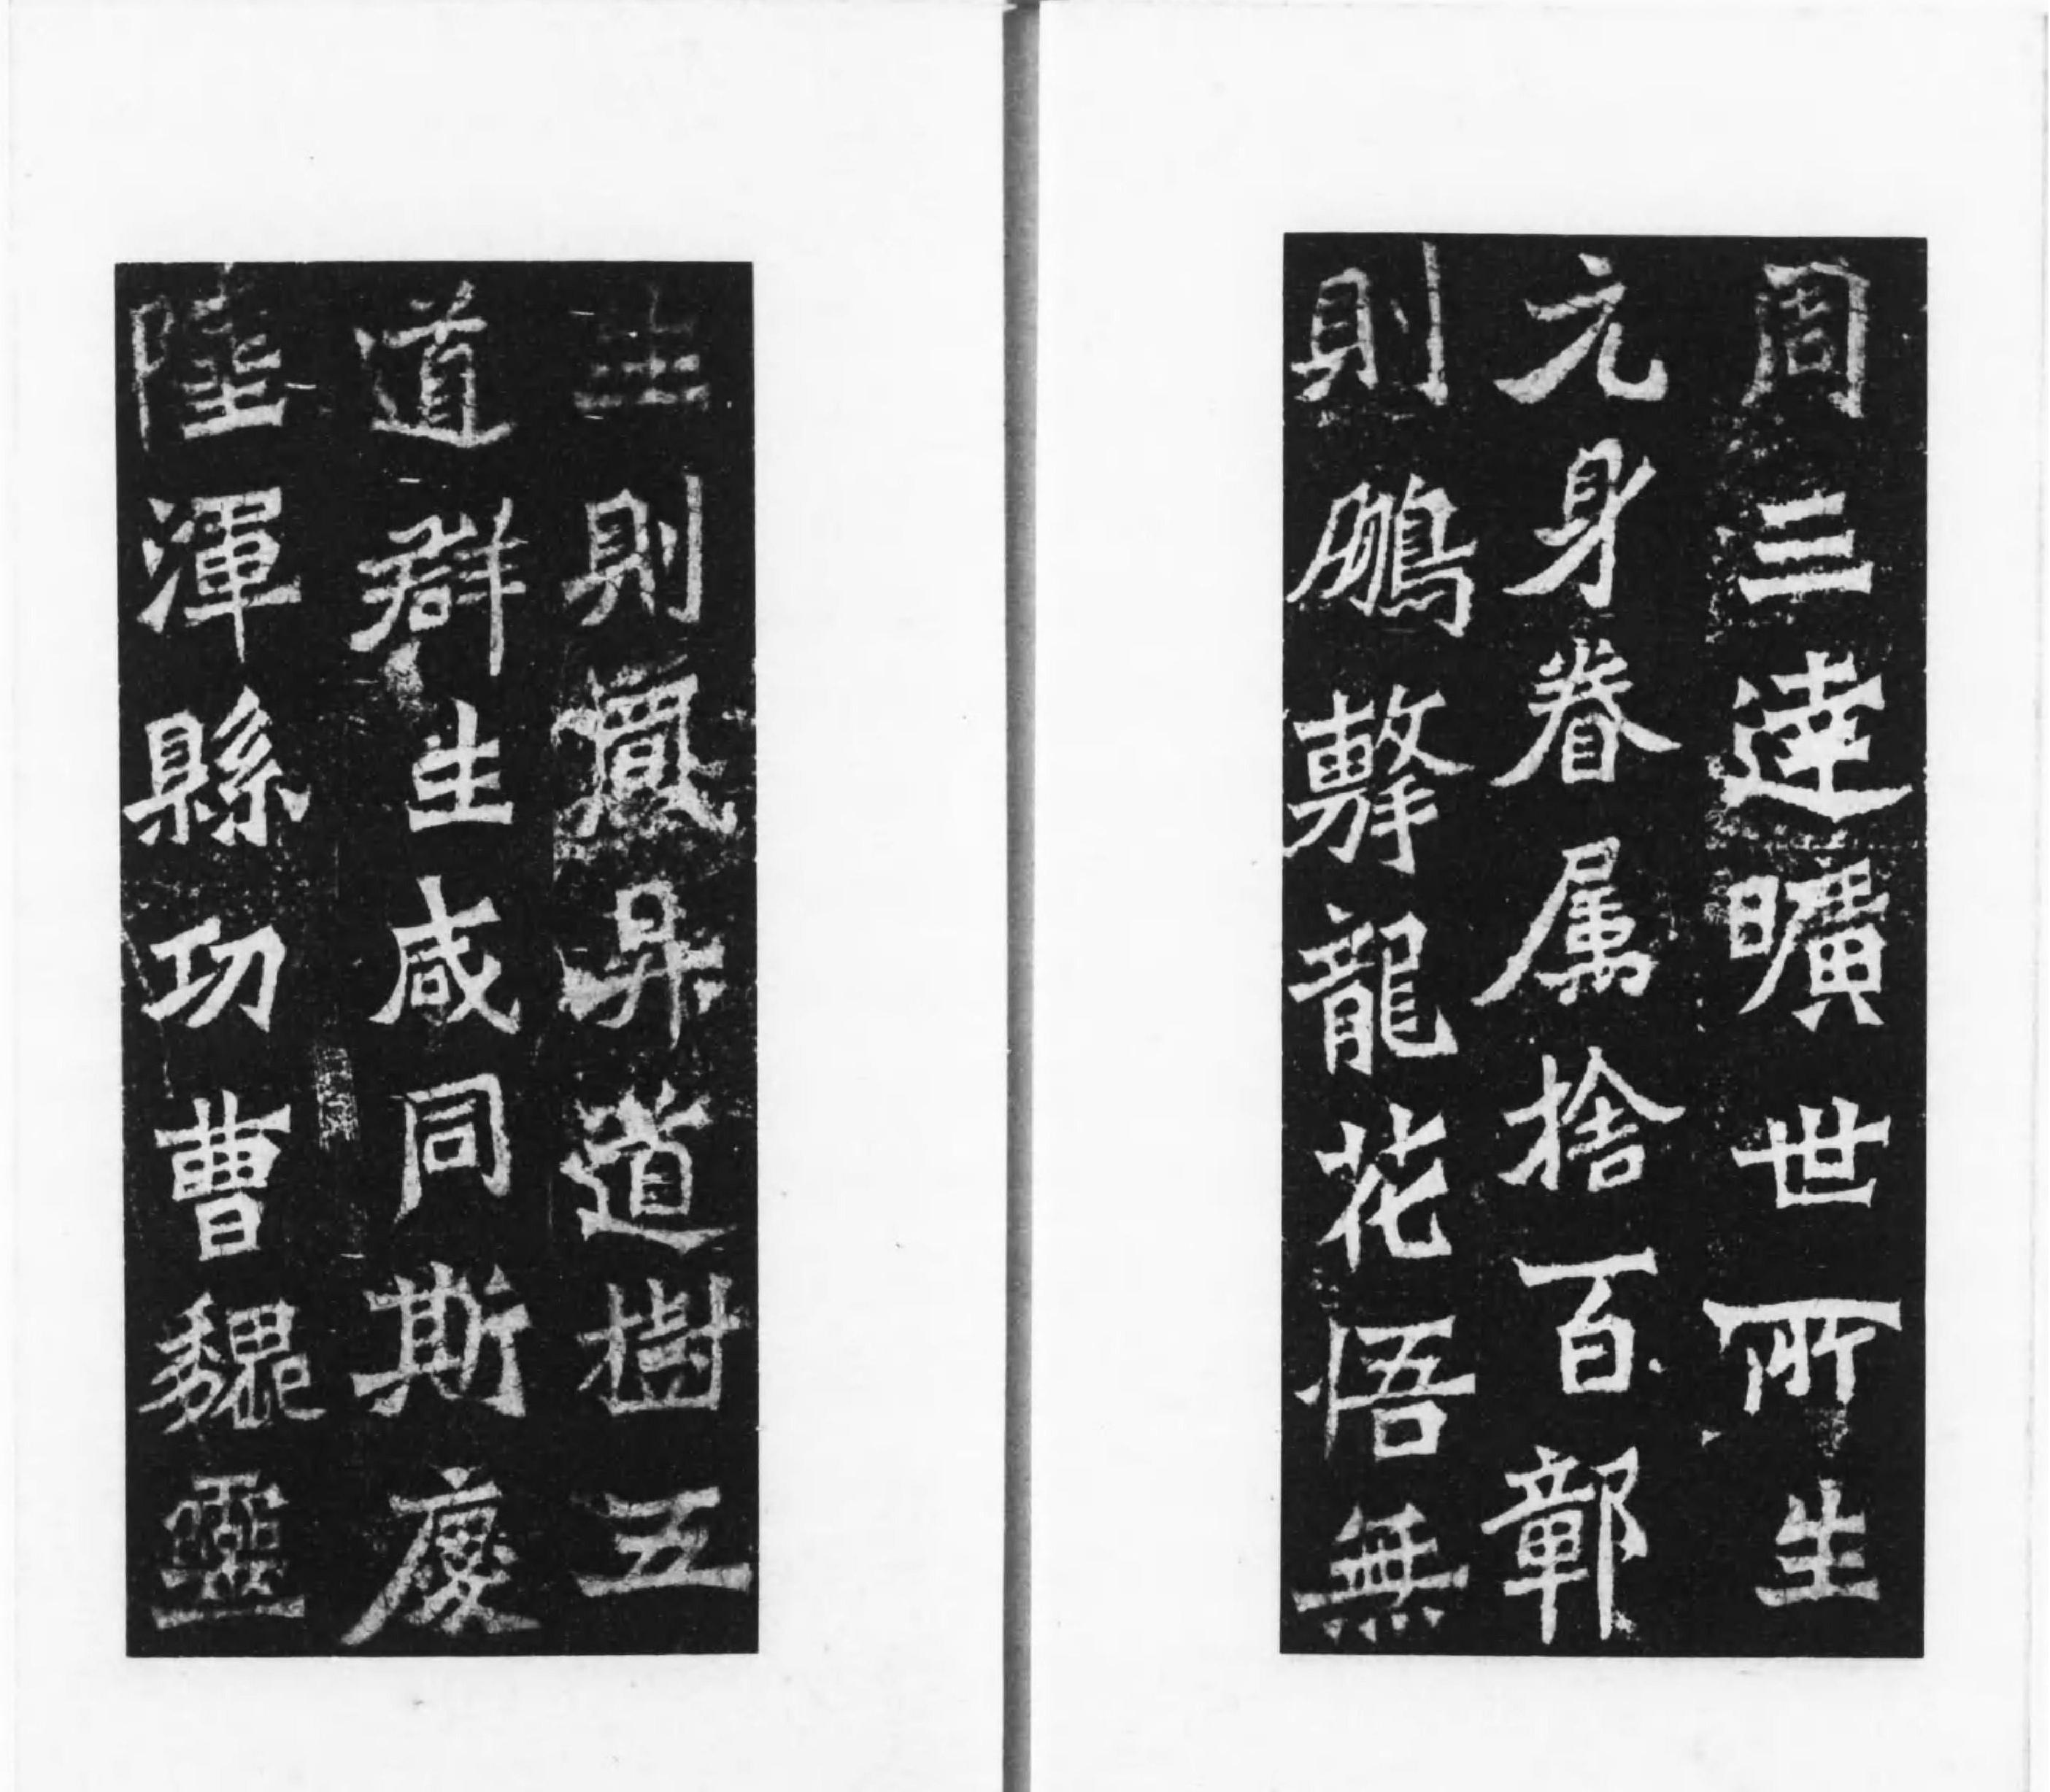 周三達曠世所生
元身眷属捨百鄣
則鵬擊龍花悟無
生則鳳昇道樹五
道群生咸同斯慶
陸渾縣功曹魏靈